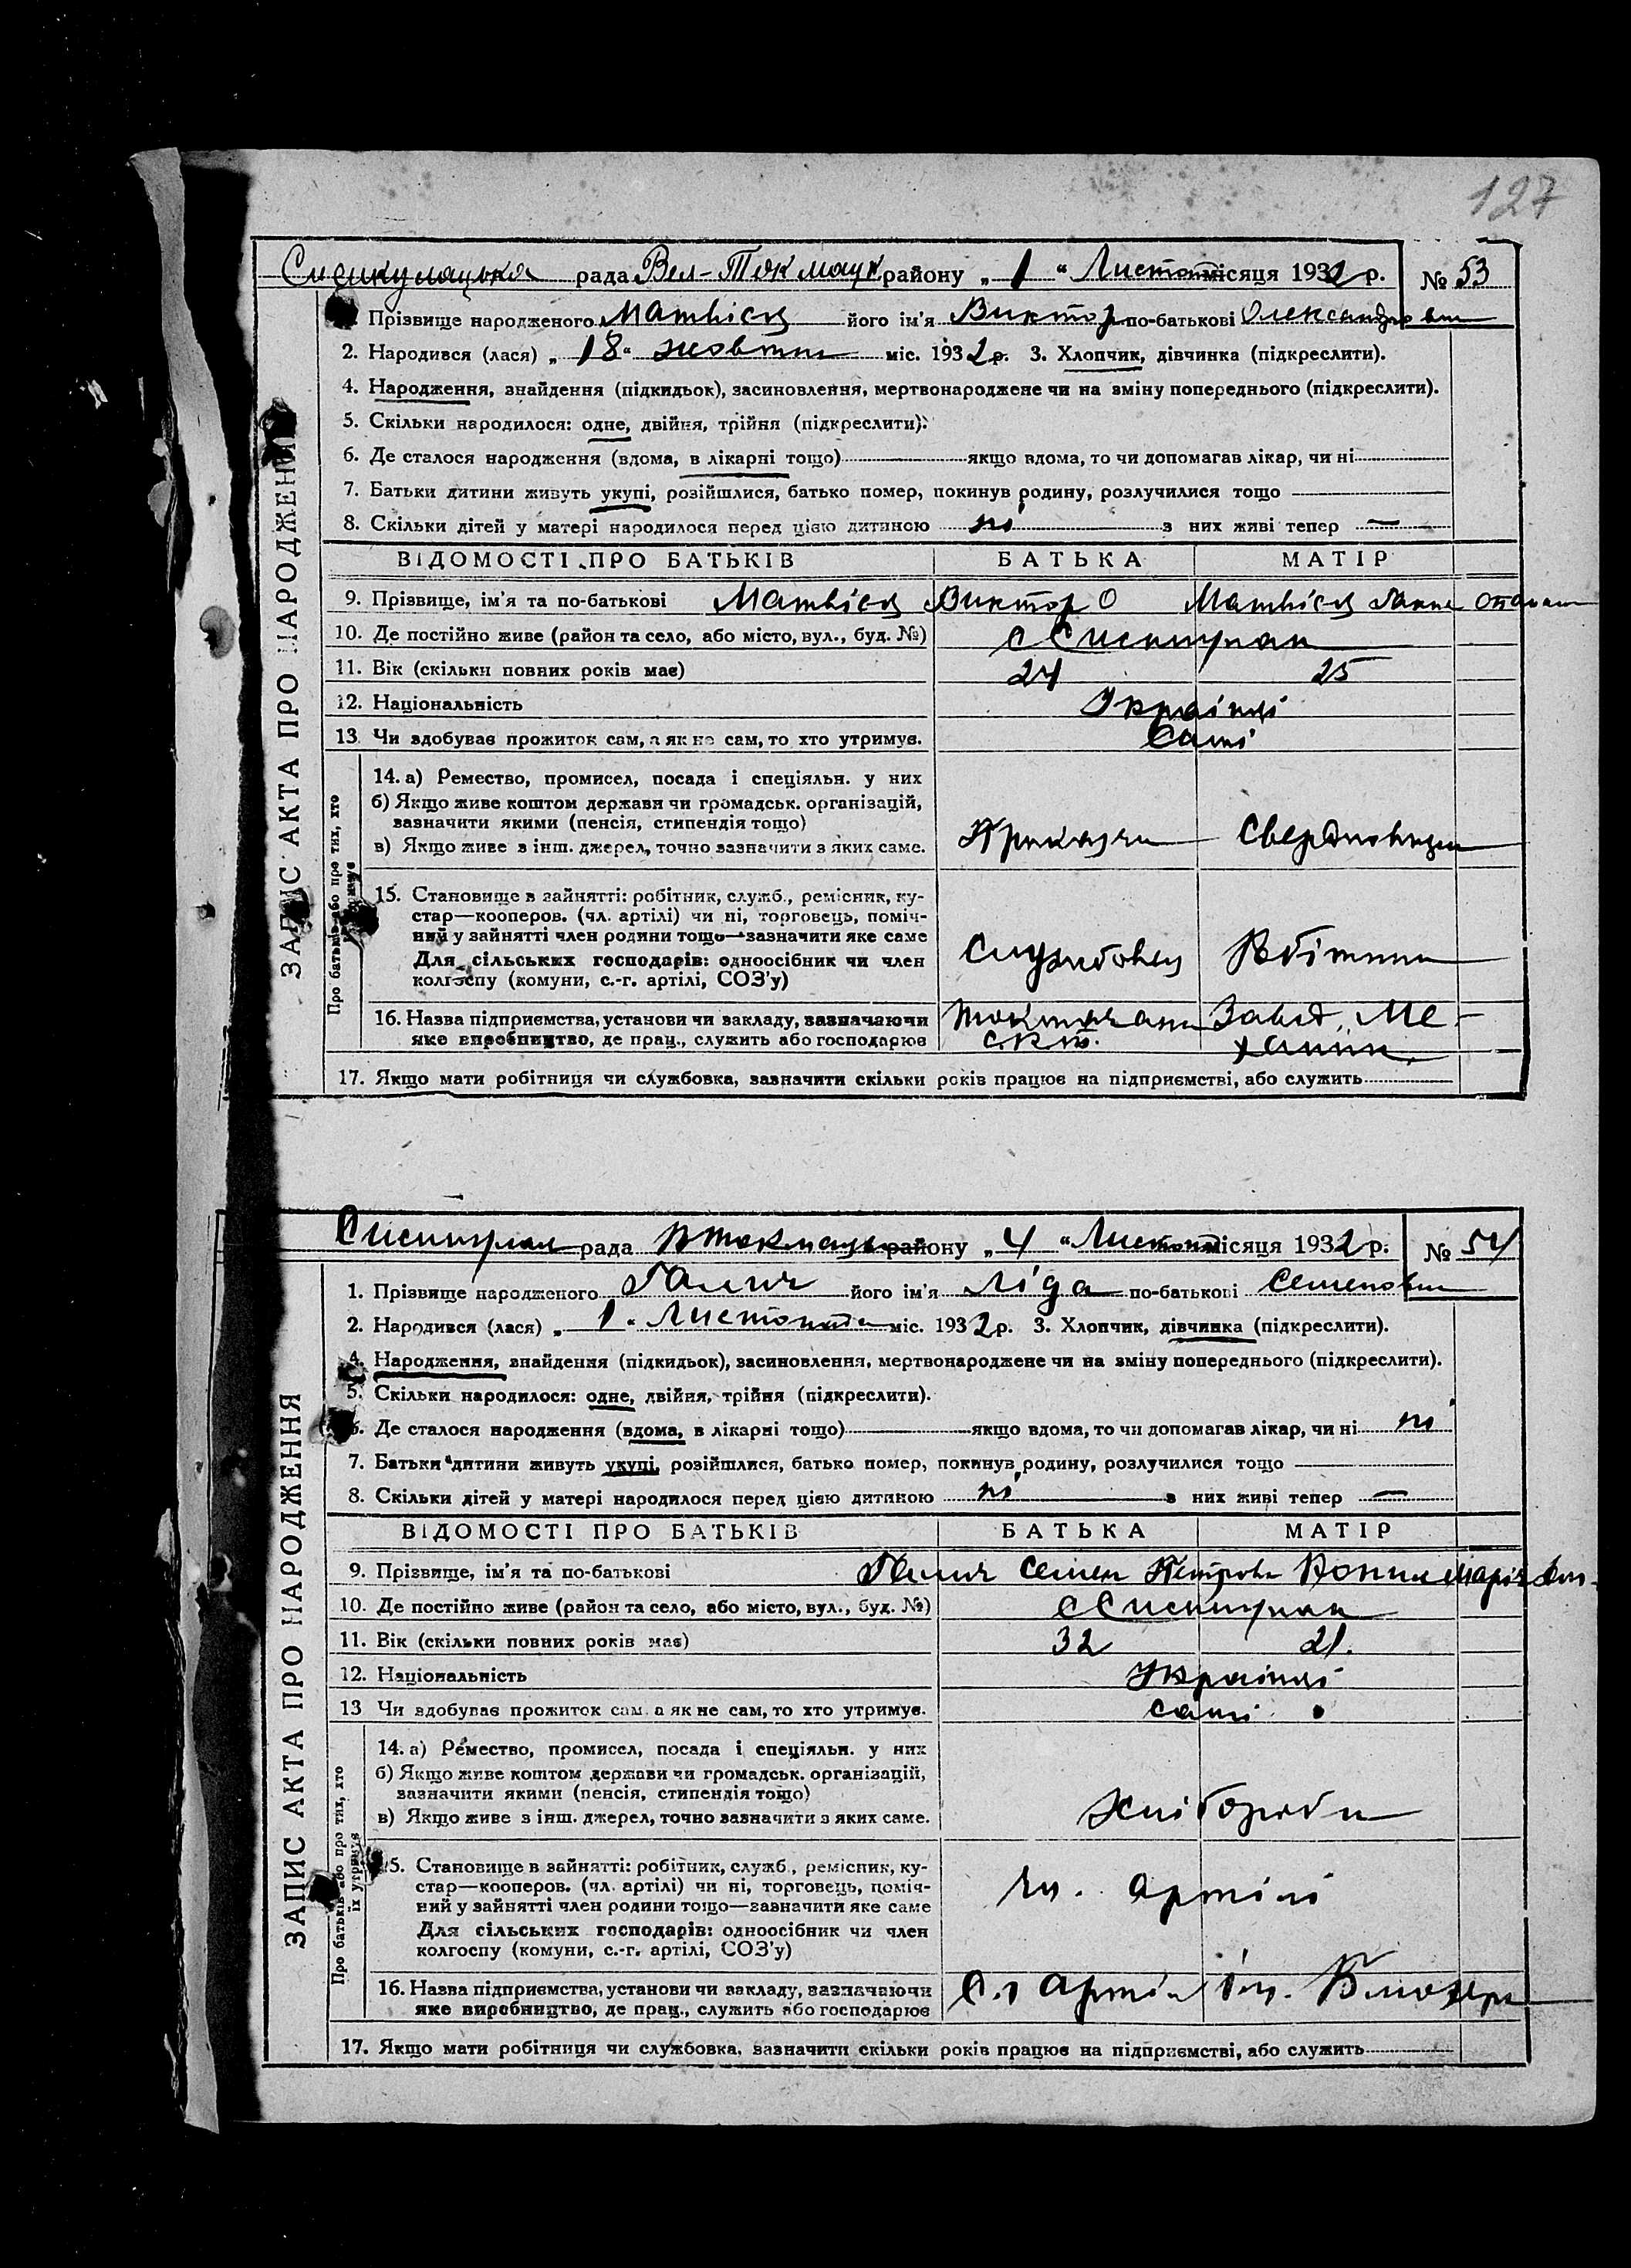 127
рада Вел-Токмацк району „ 1 “ Листоп місяця 1932 р. № 53
Прізвище народженого Матвієц його ім'я Виктор по-батькові Олександрович
2. Народився (лася) „ 18 “ жовтня міс. 1932 р. 3. Хлопчик, дівчинка (підкреслити).
4. Народження, знайдення (підкидьок), засиновлення, мертвонароджене чи на зміну попереднього (підкреслити).
5. Скільки народилося: одне, двійня, трійня (підкреслити).
6. Де сталося народження (вдома, в лікарні тощо) якщо вдома, то чи допомагав лікар, чи ні
7. Батьки дитини живуть укупі, розійшлися, батько помер, покинув родину, розлучилися тощо
8. Скільки дітей у матері народилося перед цією дитиною ні з них живі тепер —
ЗАПИС АКТА ПРО НАРОДЖЕННЯ
ВІДОМОСТІ ПРО БАТЬКІВ БАТЬКА МАТІР
9. Прізвище, ім'я та по-батькові Матвієц Виктор О Матвієц
10. Де постійно живе (район та село, або місто, вул., буд. №)
11. Вік (скільки повних років має) 24 25
12. Національність Українці
13. Чи здобував прожиток сам, а як не сам, то хто утримує. Самі
Про батьків або про тих, хто їх утримує
14. а) Ремество, промисел, посада і спеціяльн. у них
б) Якщо живе коштом держави чи громадськ. організацій,
зазначити якими (пенсія, стипендія тощо)
в) Якщо живе з інш. джерел, точно зазначити з яких саме.
15. Становище в зайнятті: робітник, служб., ремісник, ку-
стар—кооперов. (чл. артілі) чи ні, торговець, поміч-
ний у зайнятті член родини тощо—зазначити яке саме
Для сільських господарів: одноосібник чи член
колгоспу (комуни, с.-г. артілі, СОЗ'у)
Службовец
16. Назва підприємства, установи чи закладу, зазначаючи
яке виробництво, де прац., служить або господарює
Завод Ме-
17. Якщо мати робітниця чи службовка, зазначити скільки років працює на підприємстві, або служить
рада району „ 4 “ Листоп місяця 1932 р. № 54
1. Прізвище народженого Галич його ім'я Ліда по-батькові Семеновн
2. Народився (лася) „ 1 “ Листопада міс. 1932 р. 3. Хлопчик, дівчинка (підкреслити).
4. Народження, знайдення (підкидьок), засиновлення, мертвонароджене чи на зміну попереднього (підкреслити).
5. Скільки народилося: одне, двійня, трійня (підкреслити).
6. Де сталося народження (вдома, в лікарні тощо) якщо вдома, то чи допомагав лікар, чи ні ні
7. Батьки дитини живуть укупі, розійшлися, батько помер, покинув родину, розлучилися тощо
8. Скільки дітей у матері народилося перед цією дитиною ні з них живі тепер —
ЗАПИС АКТА ПРО НАРОДЖЕННЯ
ВІДОМОСТІ ПРО БАТЬКІВ БАТЬКА МАТІР
9. Прізвище, ім'я та по-батькові Галич Семен Петрови Марія
10. Де постійно живе (район та село, або місто, вул., буд. №)
11. Вік (скільки повних років має) 32 21.
12. Національність Українці
13 Чи здобував прожиток сам, а як не сам, то хто утримує. самі
Про батьків або про тих, хто їх утримує
14. а) Ремество, промисел, посада і спеціяльн. у них
б) Якщо живе коштом держави чи громадськ. організацій,
зазначити якими (пенсія, стипендія тощо)
в) Якщо живе з інш. джерел, точно зазначити з яких саме.
Хлібороби
15. Становище в зайнятті: робітник, служб., ремісник, ку-
стар—кооперов. (чл. артілі) чи ні, торговець, поміч-
ний у зайнятті член родини тощо—зазначити яке саме
Для сільських господарів: одноосібник чи член
колгоспу (комуни, с.-г. артілі, СОЗ'у)
чл. артілі
16. Назва підприємства, установи чи закладу, зазначаючи
яке виробництво, де прац., служить або господарює
С.г артіл ім. Блюхера
17. Якщо мати робітниця чи службовка, зазначити скільки років працює на підприємстві, або служить